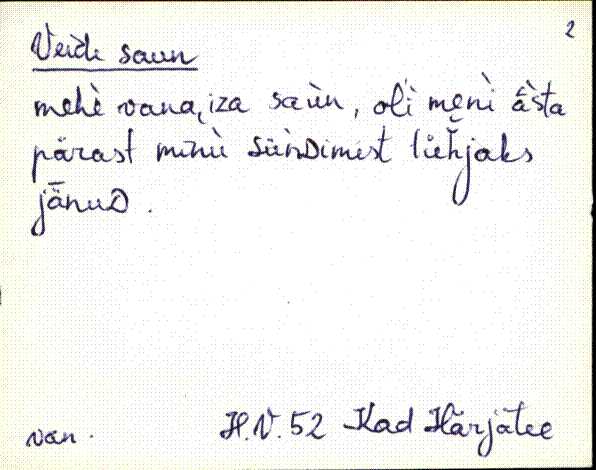 2
Veidi saun
mehè vana, iza saùn, oľì męnì ā̀sta
pärast minù süǹDimist liehjaks
jǟnuD.
van. H.V. 52 Kad Härjätee